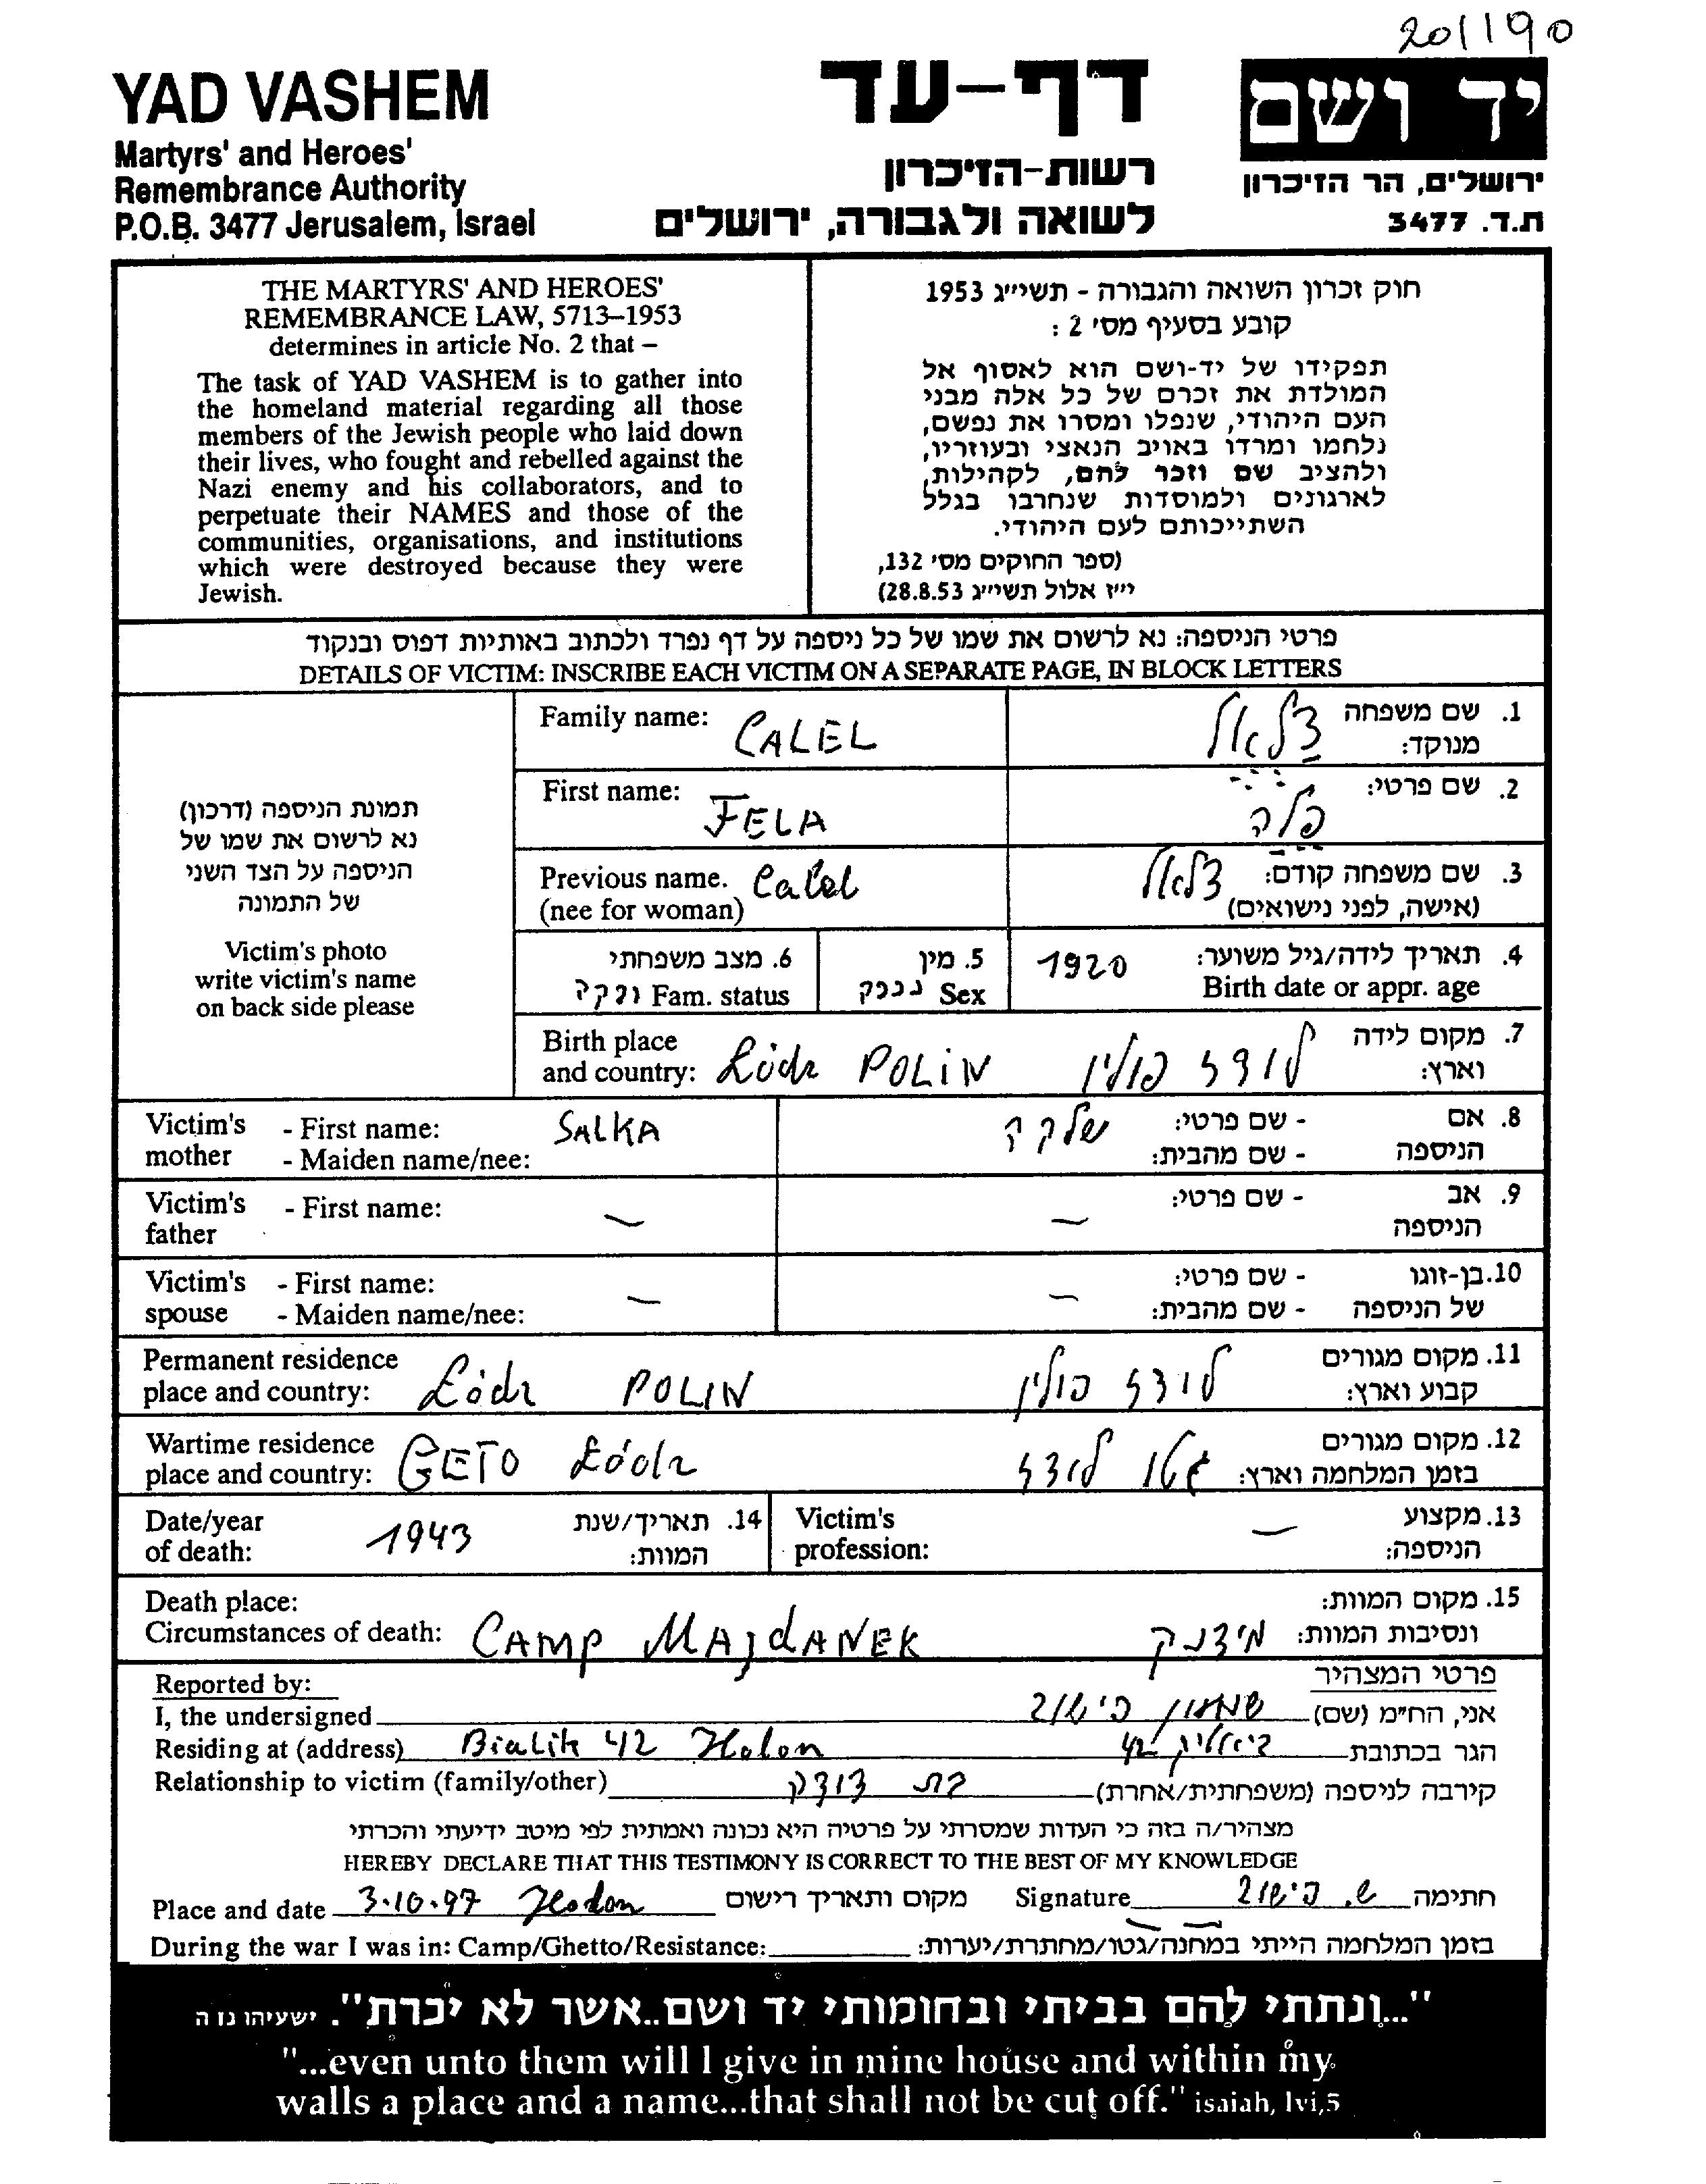 201190
YAD VASHEM
Martyrs' and Heroes'
Remembrance Authority
P.O.B. 3477 Jerusalem, Israel
דף-עד
רשות-הזיכרון
לשואה ולגבורה, ירושלים
יד ושם
ירושלים, הר הזיכרון
ת.ד. 3477
THE MARTYRS' AND HEROES'
REMEMBRANCE LAW, 5713–1953
determines in article No. 2 that –
The task of YAD VASHEM is to gather into
the homeland material regarding all those
members of the Jewish people who laid down
their lives, who fought and rebelled against the
Nazi enemy and his collaborators, and to
perpetuate their NAMES and those of the
communities, organisations, and institutions
which were destroyed because they were
Jewish.
חוק זכרון השואה והגבורה - תשי״ג 1953
קובע בסעיף מס' 2 :
תפקידו של יד-ושם הוא לאסוף אל
המולדת את זכרם של כל אלה מבני
העם היהודי, שנפלו ומסרו את נפשם,
נלחמו ומרדו באויב הנאצי ובעוזריו,
ולהציב שם וזכר להם, לקהילות,
לארגונים ולמוסדות שנחרבו בגלל
השתייכותם לעם היהודי.
(ספר החוקים מס' 132,
י״ז אלול תשי״ג 28.8.53)
פרטי הניספה: נא לרשום את שמו של כל ניספה על דף נפרד ולכתוב באותיות דפוס ובנקוד
DETAILS OF VICTIM: INSCRIBE EACH VICTIM ON A SEPARATE PAGE, IN BLOCK LETTERS
תמונת הניספה (דרכון)
נא לרשום את שמו של
הניספה על הצד השני
של התמונה
Victim's photo
write victim's name
on back side please
Family name: CALEL צלאל 1. שם משפחה
מנוקד:
First name: FELA פלה 2. שם פרטי:
Previous name. Calel צלאל 3. שם משפחה קודם:
(nee for woman) (אישה, לפני נישואים)
6. מצב משפחתי 5. מין 1920 4. תאריך לידה/גיל משוער:
רווקה Fam. status נקבה Sex Birth date or appr. age
Birth place 7. מקום לידה
and country: Łódz POLIN לודז פולין וארץ:
Victim's - First name: SALKA שלקה - שם פרטי: 8. אם
mother - Maiden name/nee: - שם מהבית: הניספה
Victim's - First name: – – - שם פרטי: 9. אב
father הניספה
Victim's - First name: – – - שם פרטי: 10. בן-זוגו
spouse - Maiden name/nee: - שם מהבית: של הניספה
Permanent residence 11. מקום מגורים
place and country: Łódz POLIN לודז פולין קבוע וארץ:
Wartime residence 12. מקום מגורים
place and country: GETO Łódz גטו לודז בזמן המלחמה וארץ:
Date/year 1943 14. תאריך/שנת Victim's – 13. מקצוע
of death: המוות: profession: הניספה:
Death place: 15. מקום המוות:
Circumstances of death: CAMP MAJdANEK מידנק ונסיבות המוות:
Reported by: פרטי המצהיר
I, the undersigned שמעון פישוב אני, הח״מ (שם)
Residing at (address) Bialik 42 Holon ביאליק 42 הגר בכתובת
Relationship to victim (family/other) בת דודה קירבה לניספה (משפחתית/אחרת)
מצהיר/ה בזה כי העדות שמסרתי על פרטיה היא נכונה ואמתית לפי מיטב ידיעתי והכרתי
HEREBY DECLARE THAT THIS TESTIMONY IS CORRECT TO THE BEST OF MY KNOWLEDGE
Place and date 3.10.97 Holon מקום ותאריך רישום Signature ש. פישוב חתימה
During the war I was in: Camp/Ghetto/Resistance: בזמן המלחמה הייתי במחנה/גטו/מחתרת/יערות:
"...ונתתי להם בביתי ובחומותי יד ושם..אשר לא יכרת". ישעיהו נו ה
"...even unto them will I give in mine house and within my
walls a place and a name...that shall not be cut off." isaiah, lvi,5